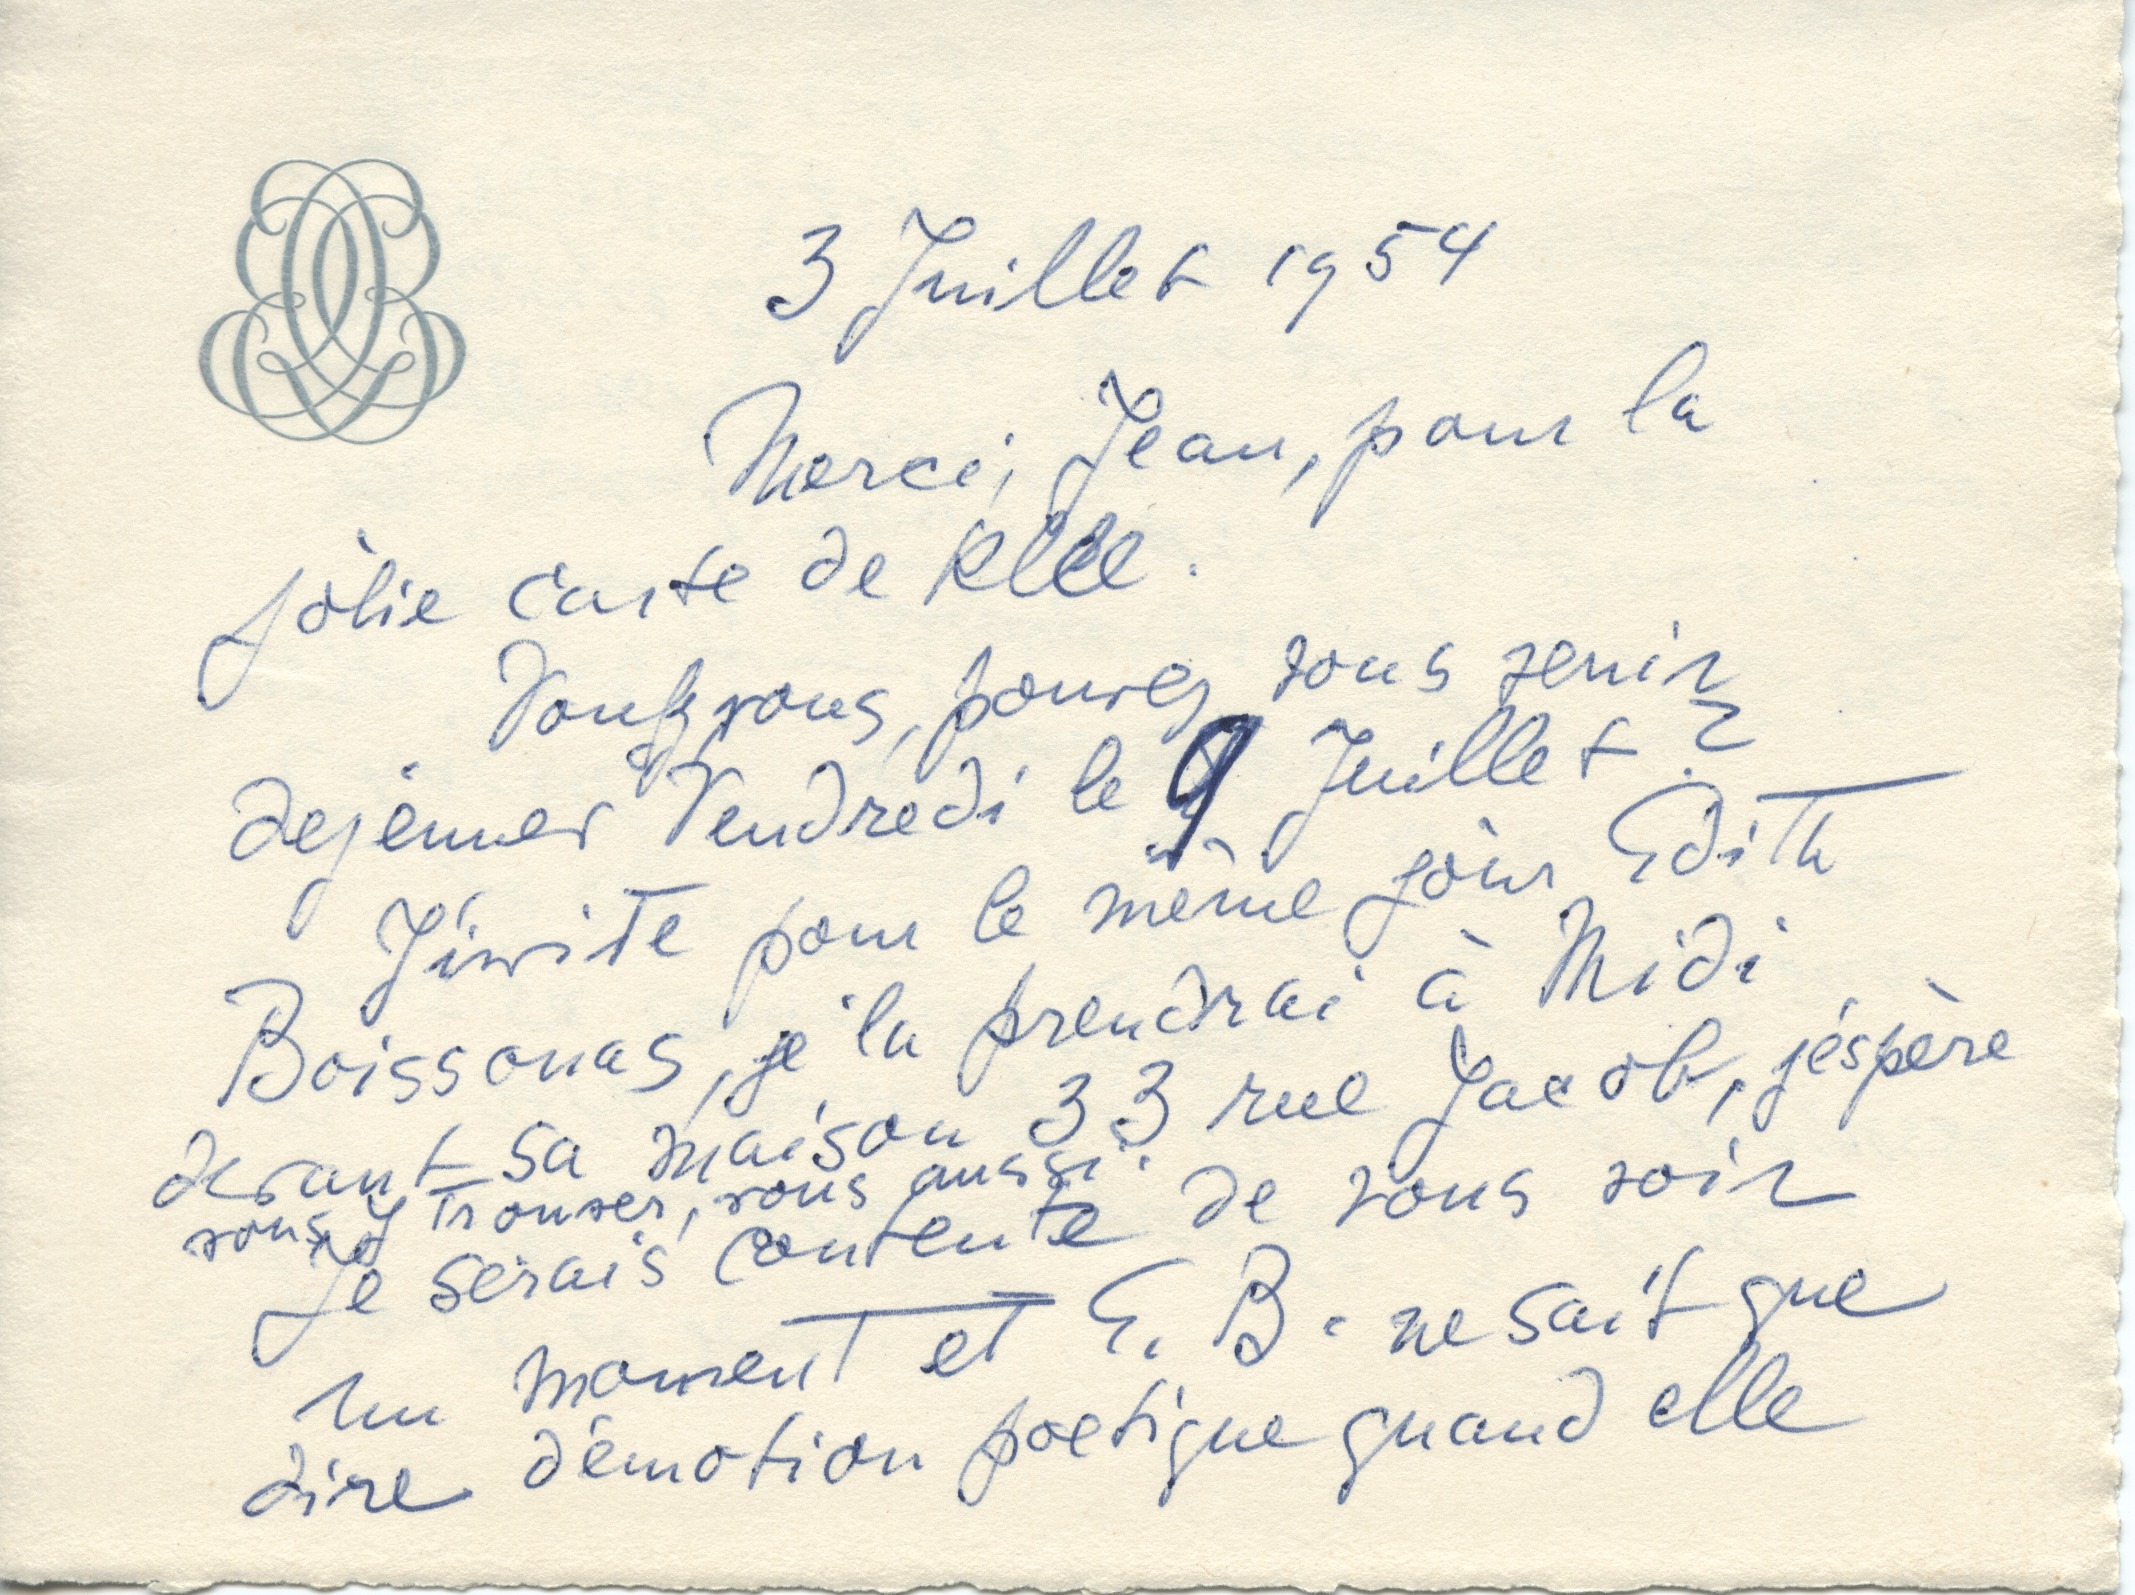 3 Juillet 1954
Merci, Jean, pour la
jolie carte de Klee.
vous, pouvez vous venir
dejéuner Vendredi le 9 Juillet?
J'invite pour le même jour Edith
Boissonas, je la prendrai à Midi
devant sa maison 33 rue Jacob, j'éspère
vous y trouver, vous aussi.
Je serais contente de vous voir
un moment et E. B. ne sait que
dire d'émotion poetique quand elle